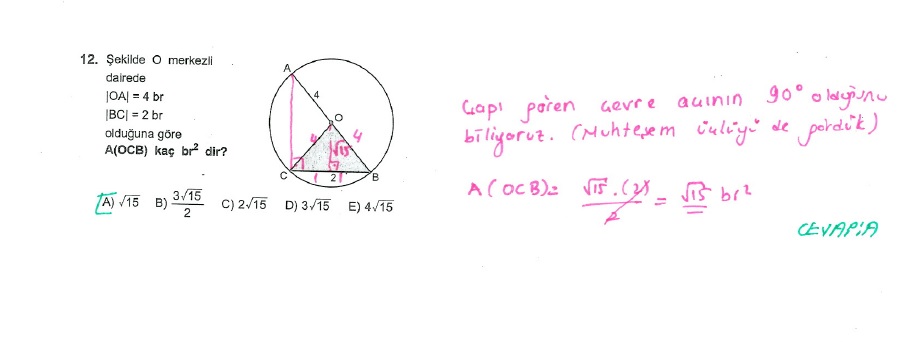 12. Şekilde O merkezli
dairede
|OA| = 4 br
|BC| = 2 br
olduğuna göre
A(OCB) kaç br² dir?
A
4
O
4
4
√15
C
1
2
1
B
A) √15 B) 3√15/2 C) 2√15 D) 3√15 E) 4√15
Çapı gören çevre açının 90° olduğunu
biliyoruz. (Muhteşem üçlüyü de gördük)
A(OCB) = √15 . (2)/2 = √15 br²
CEVAP:A